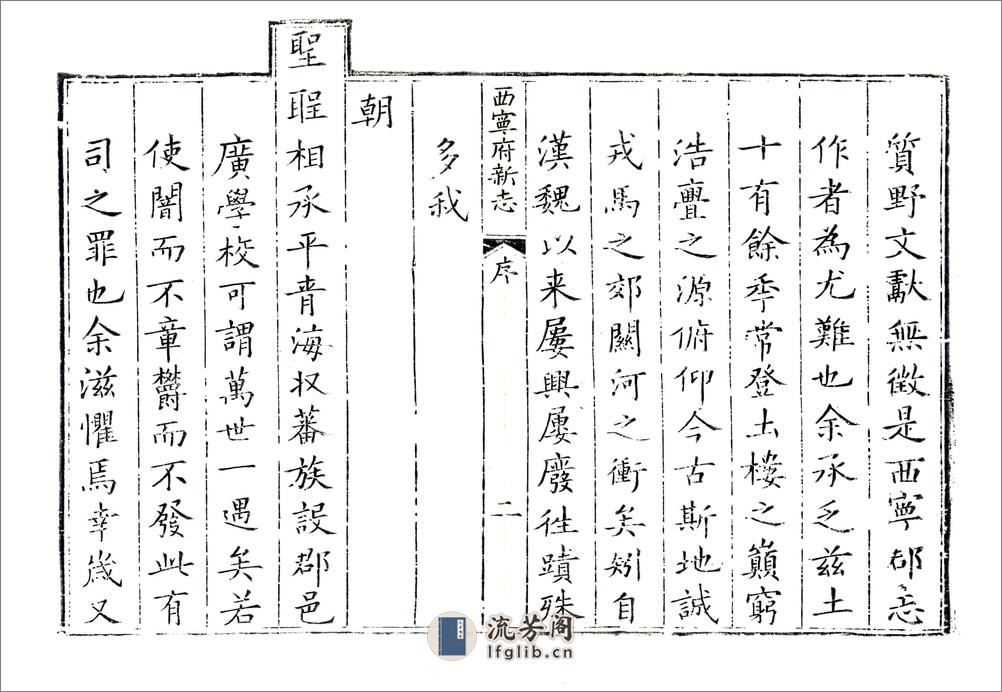 質野文獻無徵是西寧郡志
作者為尤難也余承乏兹土
十有餘年常登土樓之巔窮
浩亹之源俯仰今古斯地誠
戎馬之郊關河之衝矣矧自
漢魏以来屢興屢廢徃蹟殊
多我
西寧府新志 序 二
朝
聖聖相承平青海収蕃族設郡邑
廣學校可謂萬世一遇矣若
使闇而不章欝而不發此有
司之罪也余滋懼焉幸歲又
流芳阁
lfglib.cn